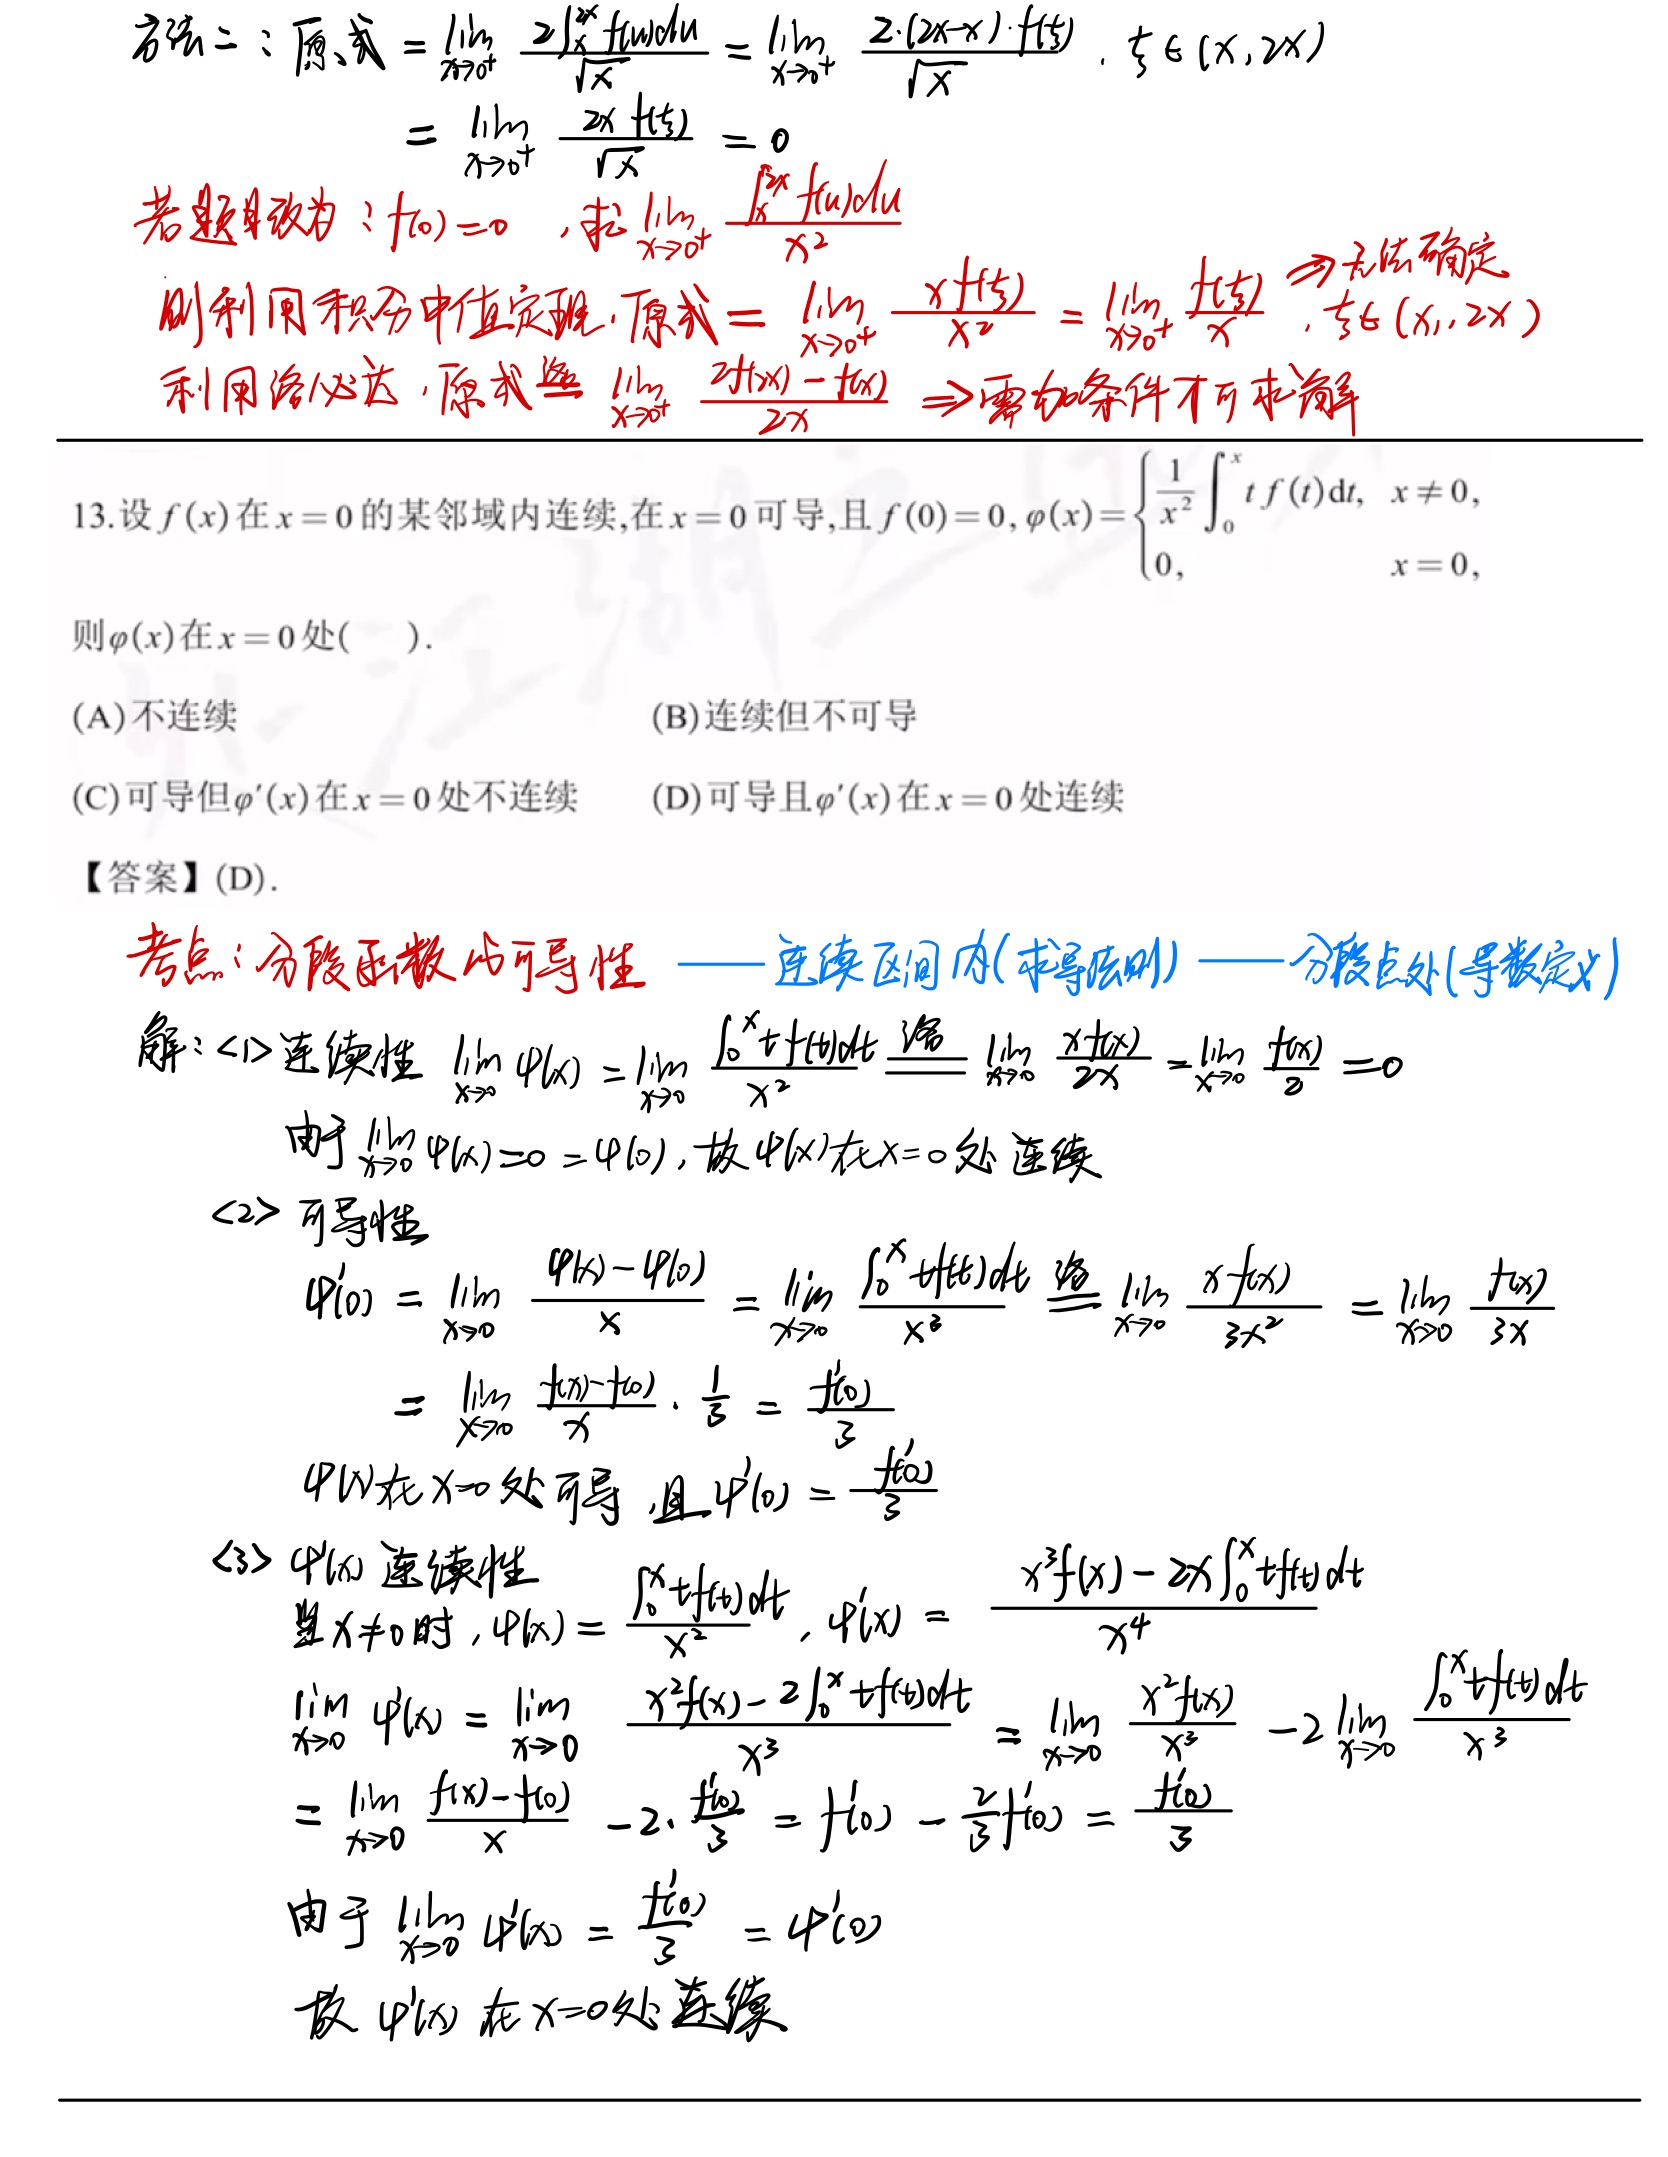 方法二：原式 = lim_{x→0⁺} 2∫_x^{2x} f(u)du / √x = lim_{x→0⁺} 2·(2x-x)·f(ξ) / √x ，ξ∈(x, 2x)
= lim_{x→0⁺} 2x f(ξ) / √x = 0
若题目改为：f(0)=0，求 lim_{x→0⁺} ∫_x^{2x} f(u)du / x²
则利用积分中值定理，原式 = lim_{x→0⁺} x f(ξ) / x² = lim_{x→0⁺} f(ξ) / x ⇒ 无法确定，ξ∈(x, 2x)
利用洛必达，原式 洛= lim_{x→0⁺} (2f(2x) - f(x)) / 2x ⇒ 需加条件才可求解
13.设 f(x)在 x=0的某邻域内连续,在 x=0可导,且 f(0)=0, φ(x)= { 1/x² ∫_0^x t f(t)dt, x≠0,
0, x=0,
则φ(x)在x=0处( ).
(A)不连续 (B)连续但不可导
(C)可导但φ′(x)在x=0处不连续 (D)可导且φ′(x)在x=0处连续
【答案】(D).
考点：分段函数的可导性 —— 连续区间内(求导法则) —— 分段点处(导数定义)
解：<1> 连续性 lim_{x→0} φ(x) = lim_{x→0} ∫_0^x t f(t)dt / x² 洛= lim_{x→0} x f(x) / 2x = lim_{x→0} f(x) / 2 = 0
由于 lim_{x→0} φ(x) = 0 = φ(0)，故 φ(x) 在 x=0 处 连续
<2> 可导性
φ′(0) = lim_{x→0} (φ(x) - φ(0)) / x = lim_{x→0} ∫_0^x t f(t)dt / x³ 洛= lim_{x→0} x f(x) / 3x² = lim_{x→0} f(x) / 3x
= lim_{x→0} (f(x) - f(0)) / x · 1/3 = f′(0) / 3
φ(x) 在 x=0 处 可导，且 φ′(0) = f′(0) / 3
<3> φ′(x) 连续性
当 x≠0 时，φ(x) = ∫_0^x t f(t)dt / x²，φ′(x) = (x³f(x) - 2x∫_0^x t f(t)dt) / x⁴
lim_{x→0} φ′(x) = lim_{x→0} (x²f(x) - 2∫_0^x t f(t)dt) / x³ = lim_{x→0} x²f(x) / x³ - 2 lim_{x→0} ∫_0^x t f(t)dt / x³
= lim_{x→0} (f(x) - f(0)) / x - 2· f′(0)/3 = f′(0) - 2/3 f′(0) = f′(0) / 3
由于 lim_{x→0} φ′(x) = f′(0) / 3 = φ′(0)
故 φ′(x) 在 x=0 处 连续